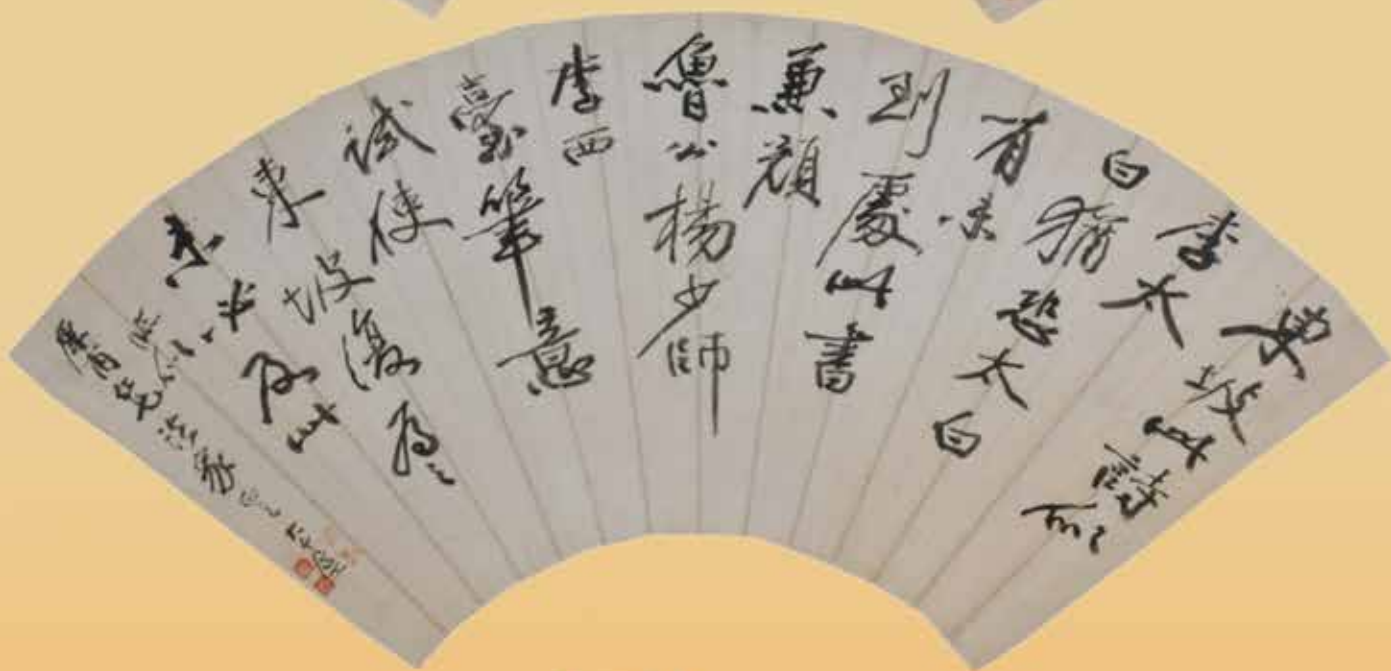 東坡此詩似
李太
白猶恐太白
有味
到處此書
兼顏
魯公楊少師
李西
臺筆意
試使
東坡復為之
未必及此
法家正之